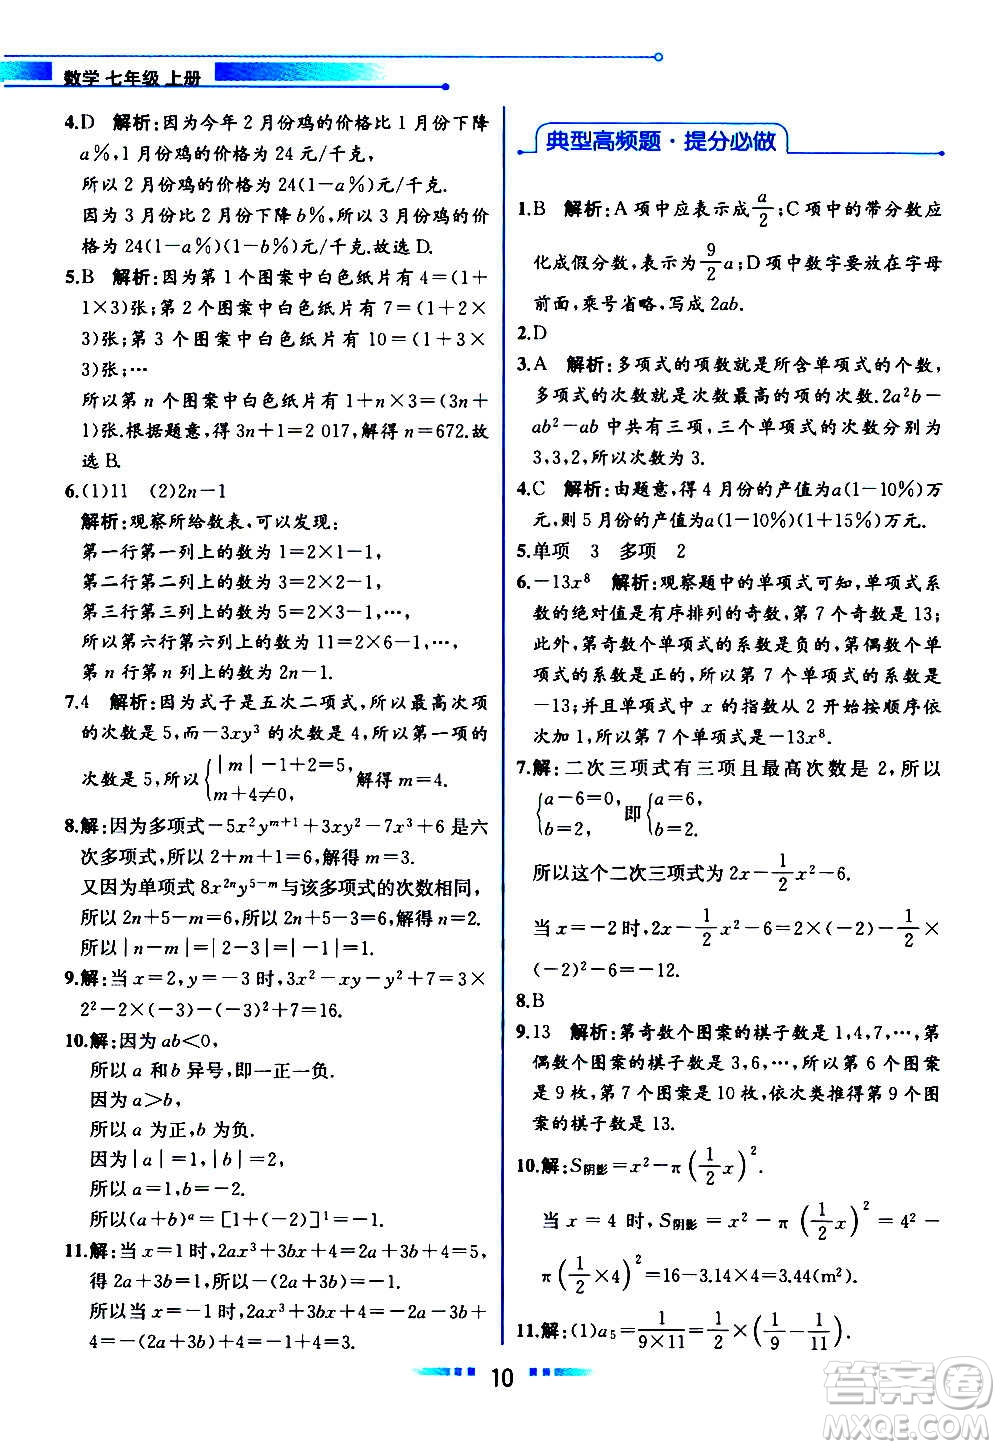 数学 七年级 上册
4.D 解析:因为今年 2 月份鸡的价格比 1 月份下降
a%,1 月份鸡的价格为 24 元/千克,
所以 2 月份鸡的价格为 24(1-a%)元/千克.
因为 3 月份比 2 月份下降 b%,所以 3 月份鸡的价
格为 24(1-a%)(1-b%)元/千克.故选 D.
5.B 解析:因为第 1 个图案中白色纸片有 4=(1+
1×3)张;第 2 个图案中白色纸片有 7=(1+2×
3)张;第 3 个图案中白色纸片有 10=(1+3×
3)张;…
所以第 n 个图案中白色纸片有 1+n×3=(3n+
1)张.根据题意,得 3n+1=2 017,解得 n=672.故
选 B.
6.(1)11 (2)2n-1
解析:观察所给数表,可以发现:
第一行第一列上的数为 1=2×1-1,
第二行第二列上的数为 3=2×2-1,
第三行第三列上的数为 5=2×3-1,…,
所以第六行第六列上的数为 11=2×6-1,
第 n 行第 n 列上的数为 2n-1.
7.4 解析:因为式子是五次二项式,所以最高次项
的次数是 5,而-3xy³ 的次数是 4,所以第一项的
次数是 5,所以{|m|-1+2=5, m+4≠0, 解得 m=4.
8.解:因为多项式-5x²y^{m+1}+3xy²-7x³+6 是六
次多项式,所以 2+m+1=6,解得 m=3.
又因为单项式 8x^{2n}y^{5-m}与该多项式的次数相同,
所以 2n+5-m=6,所以 2n+5-3=6,解得 n=2.
所以|n-m|=|2-3|=|-1|=1.
9.解:当 x=2,y=-3 时,3x²-xy-y²+7=3×
2²-2×(-3)-(-3)²+7=16.
10.解:因为 ab<0,
所以 a 和 b 异号,即一正一负.
因为 a>b,
所以 a 为正,b 为负.
因为|a|=1,|b|=2,
所以 a=1,b=-2.
所以(a+b)^a=[1+(-2)]¹=-1.
11.解:当 x=1 时,2ax³+3bx+4=2a+3b+4=5,
得 2a+3b=1,所以-(2a+3b)=-1.
所以当 x=-1 时,2ax³+3bx+4=-2a-3b+
4=-(2a+3b)+4=-1+4=3.
典型高频题·提分必做
1.B 解析:A 项中应表示成 a/2;C 项中的带分数应
化成假分数,表示为 9/2 a;D 项中数字要放在字母
前面,乘号省略,写成 2ab.
2.D
3.A 解析:多项式的项数就是所含单项式的个数,
多项式的次数就是次数最高的项的次数.2a²b-
ab²-ab 中共有三项,三个单项式的次数分别为
3,3,2,所以次数为 3.
4.C 解析:由题意,得 4 月份的产值为 a(1-10%)万
元,则 5 月份的产值为 a(1-10%)(1+15%)万元.
5.单项 3 多项 2
6.-13x⁸ 解析:观察题中的单项式可知,单项式系
数的绝对值是有序排列的奇数,第 7 个奇数是 13;
此外,第奇数个单项式的系数是负的,第偶数个单
项式的系数是正的,所以第 7 个单项式的系数是
-13;并且单项式中 x 的指数从 2 开始按顺序依
次加 1,所以第 7 个单项式是-13x⁸.
7.解:二次三项式有三项且最高次数是 2,所以
{a-6=0, b=2, 即{a=6, b=2.
所以这个二次三项式为 2x-1/2 x²-6.
当 x=-2 时,2x-1/2 x²-6=2×(-2)-1/2×
(-2)²-6=-12.
8.B
9.13 解析:第奇数个图案的棋子数是 1,4,7,…,第
偶数个图案的棋子数是 3,6,…,所以第 6 个图案
是 9 枚,第 7 个图案是 10 枚,依次类推,第 9 个图
案的棋子数是 13.
10.解:S阴影=x²-π(1/2 x)².
当 x=4 时,S阴影=x²-π(1/2 x)²=4²-
π(1/2×4)²=16-3.14×4=3.44(m²).
11.解:(1)a₅=1/(9×11)=1/2×(1/9-1/11).
10
答案圈
MXQE.COM